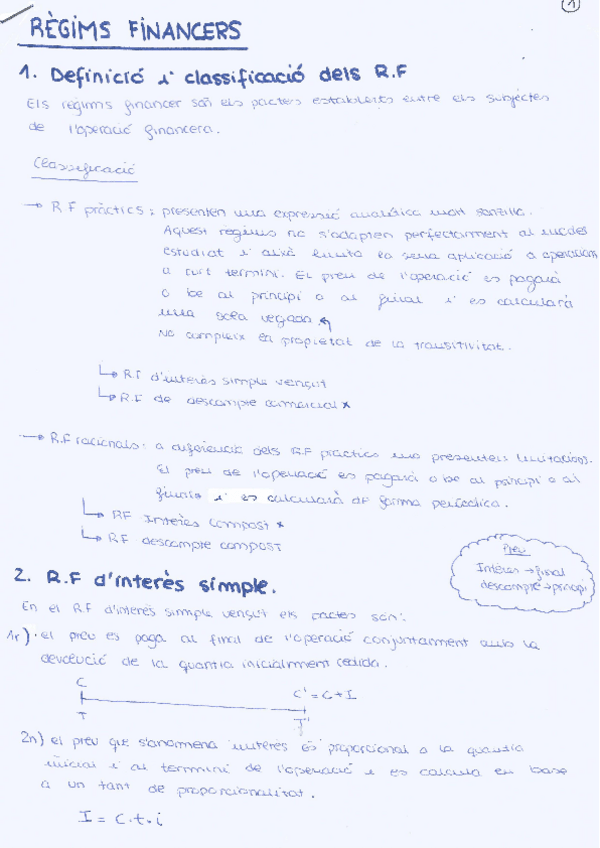 1
RÈGIMS FINANCERS
1. Definició i classificació dels R.F
Els règims financer són els pactes establerts entre els subjectes
de l'operació financera.
Classificació
→ R.F pràctics: presenten una expressió analítica molt senzilla.
Aquest règims no s'adapten perfectament al model
estudiat i això limita la seva aplicació a operacions
a curt termini. El preu de l'operació es pagarà
o be al principi o al final i es calcularà
una sola vegada.
No compleix la propietat de la transitivitat.
↳ R.F d'interès simple vençut
↳ R.F de descompte comercial *
→ R.F racionals: a diferencia dels R.F practics no presenten limitacions.
El preu de l'operació es pagarà o be al principi o al
final i es calcularà de forma periodica.
↳ RF Interès compost *
↳ RF descompte compost
Preu
Interes → final
descompte → principi
2. R.F d'interès simple.
En el RF d'interès simple vençut els pactes són:
1r) · el preu es paga al final de l'operació conjuntament amb la
devolució de la quantia inicialment cedida.
C
C' = C + I
T
T'
2n) el preu que s'anomena interes és proporcional a la quantia
inicial i al termini de l'operació i es calcula en base
a un tant de proporcionalitat.
I = C · t · i